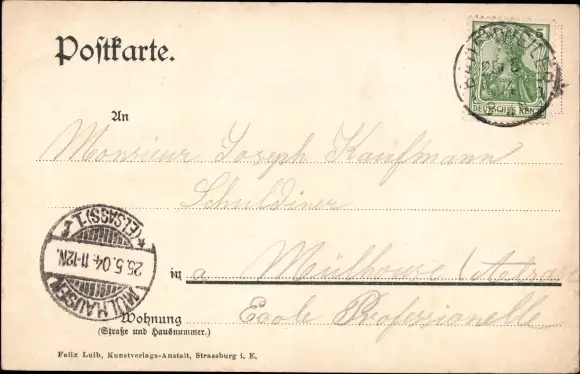 Postkarte.
5
DEUTSCHES REICH
An
Monsieur Joseph Kaufmann
Schuldiner
in a Mülhouse (Alsace)
Wohnung Ecole Professionelle
(Straße und Hausnummer.)
MÜLHAUSEN
25.5.04.11-12N.
*(ELSASS)1.
Felix Luib, Kunstverlags-Anstalt, Strassburg i. E.